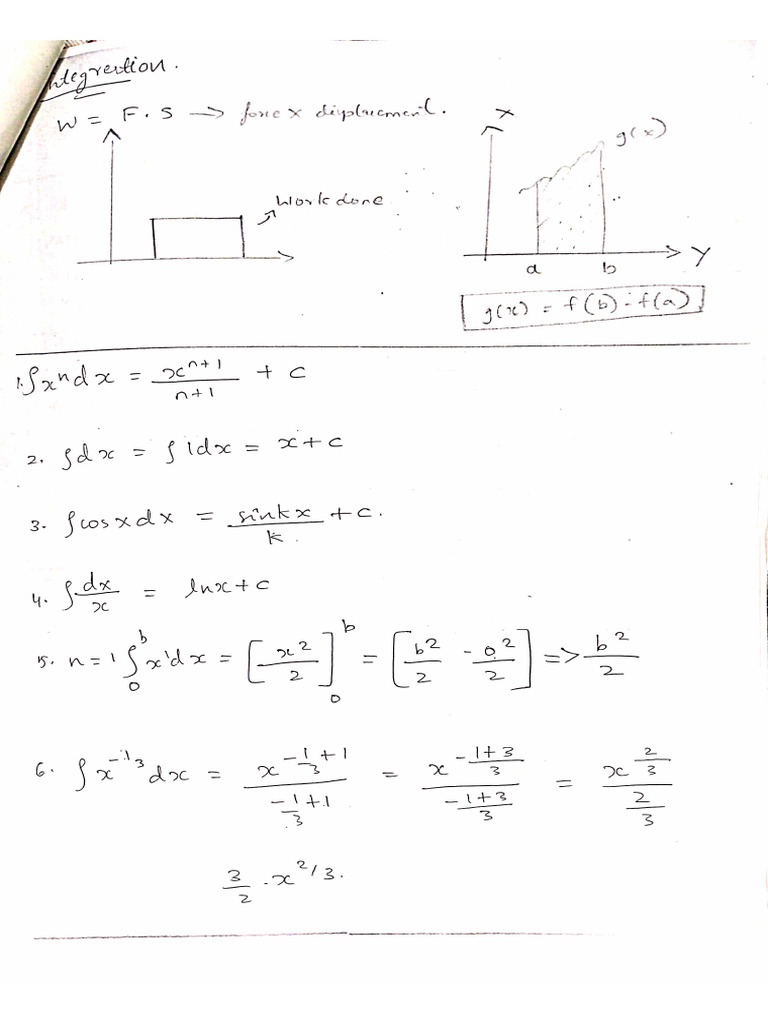 Integration.
W = F . S → force x displacement.
x
g(x)
Work done
Y
a b
g(x) = f(b) - f(a)
1. ∫x^n dx = x^(n+1)/(n+1) + c
2. ∫dx = ∫1dx = x + c
3. ∫cos x dx = sin kx/k + c.
4. ∫dx/x = ln x + c
5. n = 1 ∫_0^b x^1 dx = [x^2/2]_0^b = [b^2/2 - 0^2/2] => b^2/2
6. ∫x^(-1/3) dx = x^(-1/3 + 1)/(-1/3 + 1) = x^((-1+3)/3)/((-1+3)/3) = x^(2/3)/(2/3)
3/2 . x^2/3.